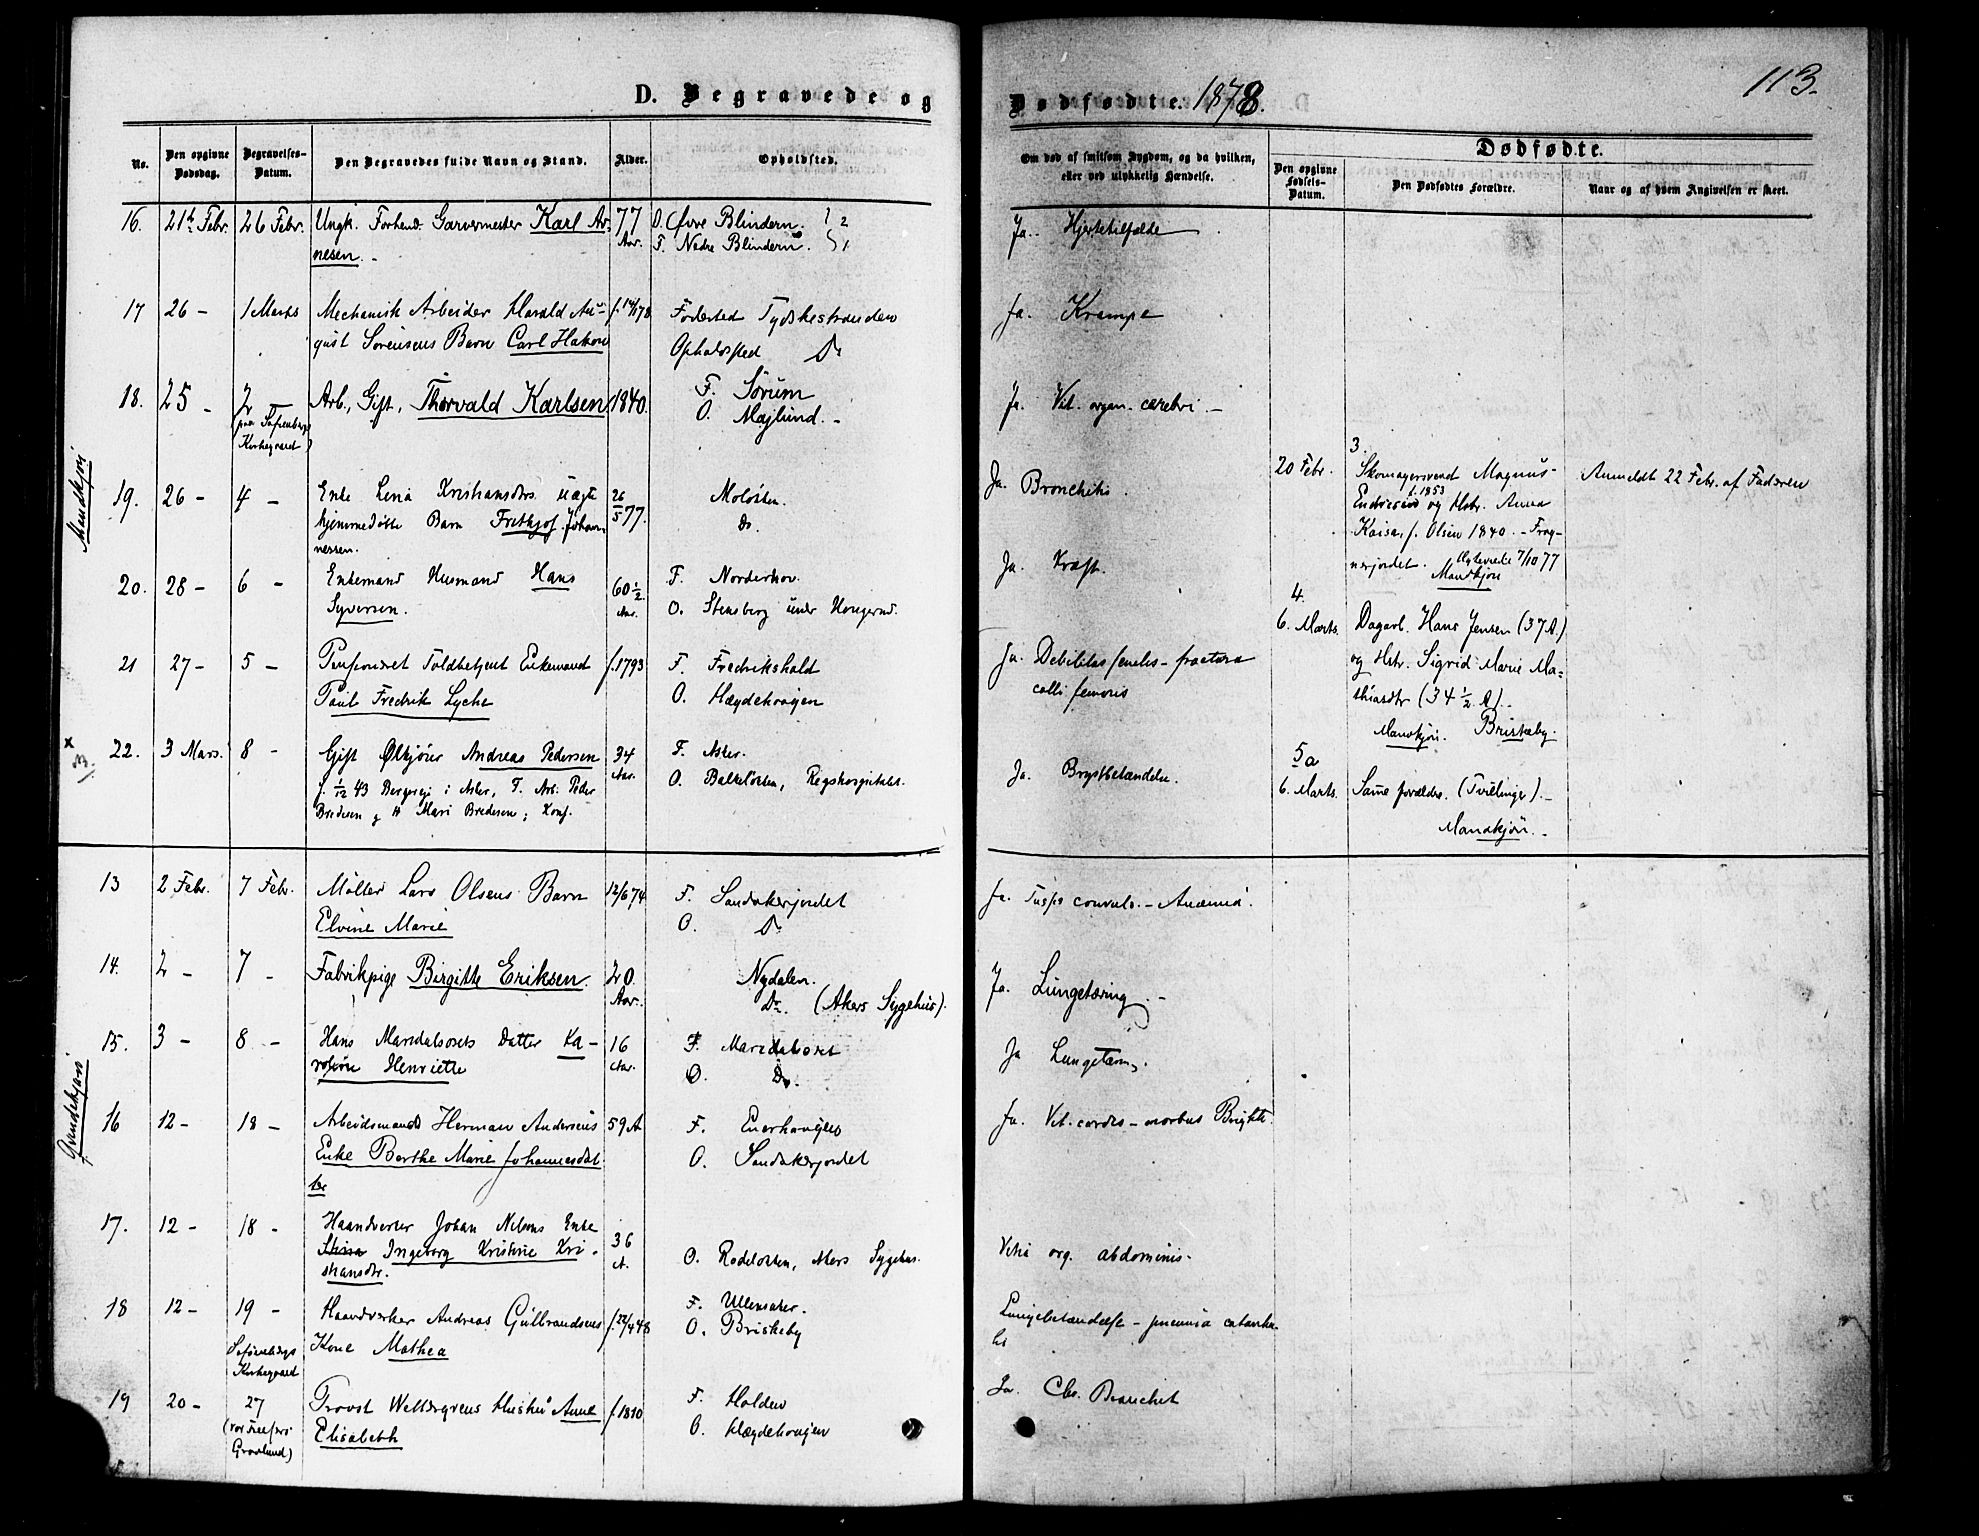 D. Begravede og
No.
Den opgivne Dødsdag.
Begravelses-Datum.
Den Begravedes fulde Navn og Stand.
Alder.
Opholdsted.
16. 21de Febr. 26 Febr. Ungk. Forhend. Garvermester Karl Ar- 77 O. Øvre Blindern. 2
nesen. Aar. F. Nedre Blindern. 1
17 26 - 1 Marts Mechanisk Arbeider Harald Au- f. 14/1 78 Fødested Tydskestranden
gust Sørensens Barn Carl Hakon Opholdsted Do
18. 25 - 2 Arb., Gift, Thorvald Karlsen 1840. F. Sørum
(paa Sofienbergs O. Majlund.
Kirkegaard)
Mandkjøn
19. 26 - 4 - Enke Lena Kristiansdtrs uægte 26/5 77. Moløkken.
hjemmedøbte Barn Frithjof Johan- Do.
nessen.
20. 28 - 6 - Enkemand Husmand Hans 60 1/2 F. Norderhov.
Syversen. Aar. O. Stensberg under Hougerud.
21 27 - 5 - Pensioneret Toldbetjent Enkemand f. 1793 F. Fredrikshald
Paul Fredrik Lyche O. Hægdehougen
22. 3 Mars. 8 - Gift Ølkjører Andreas Pedersen 34 F. Asker.
f. 1/12 43 Bergersj i Asker, F. Arb. Peder Aar. O. Balkeløkken, Rigshospitalet.
Bredesen og H Mari Bredesen; Konf.
13 2 Febr. 7 Febr. Møller Lars Olsens Barn 12/6 74 F. Sandakerjordet
Elvine Marie O. Do
14. 2 - 7 - Fabrikpige Birgitte Eriksen. 20 Nydalen.
Aar. Do. (Akers Sygehus).
15. 3 - 8 - Hans Maridalsosets Datter Ka- 16 F. Maridalsoset
roline Henriette Aar. O. Do.
Qvindekjøn
16 12 - 18 - Arbeidsmand Herman Andersens 59 A F. Enerhaugen
Enke Berthe Marie Johannesdat- O. Sandakerjordet
ter
17. 12 - 18 - Haandverker Johan Nilsens Enke 36
Stina Ingeborg Kristine Kri- A. O. Rodeløkken, Akers Sygehus.
stiansdtr.
18 12 - 19 - Haandverker Andreas Gulbrandsens f. 22/4 48 F. Ullensaker.
Sofienbergs Kone Mathea O. Briskeby
Kirkegaard
19 20 - 27 Provst Wettergreens Hustru Anne f. 1810 F. Holden
(vor Frelsers Elisabeth O. Hægdehougen
Gravlund)
Dødfødte. 1878.
113.
Om død af smitsom Sygdom, og da hvilken, eller ved ulykkelig Hændelse.
Dødfødte.
Den opgivne Fødsels-Datum.
Den Dødfødtes Forældre.
Naar og af hvem Angivelsen er skeet.
Ja. Hjertetilfælde
Ja. Krampe
Ja. Vit. organ. cerebri. -
Ja. Bronchitis.
Ja. Kræft.
Ja. Debilitas senilis - fractura
colli femoris
Ja. Brystbetændelse.
3.
20 Febr. Skomagersvend Magnus Anmeldt 22 Febr. af Faderen
f. 1853
og Hstr. Anna
Kaisa, f. Olsen 1840. - Frog-
nerjordet. 7/10 77
Mandkjøn
4.
6. Marts. Dagarb. Hans Jensen (37 A.)
og Hstr. Sigrid Marie Ma-
thiasdtr (34 1/2 A).
Mandkjøn. Briskeby.
5a
6. Marts. Samme forældre. (Tvillinger). -
Mandkjøn. -
Ja. Tussis convuls. - Anæmia.
Ja. Lungetæring. -
Ja Lungetæring.
Ja. Vit. cordis - morbus Brightii.
Vitia org. abdominis.
Lungebetændelse - pneumonia catarrha-
lis
Ja. Chr. Bronchit